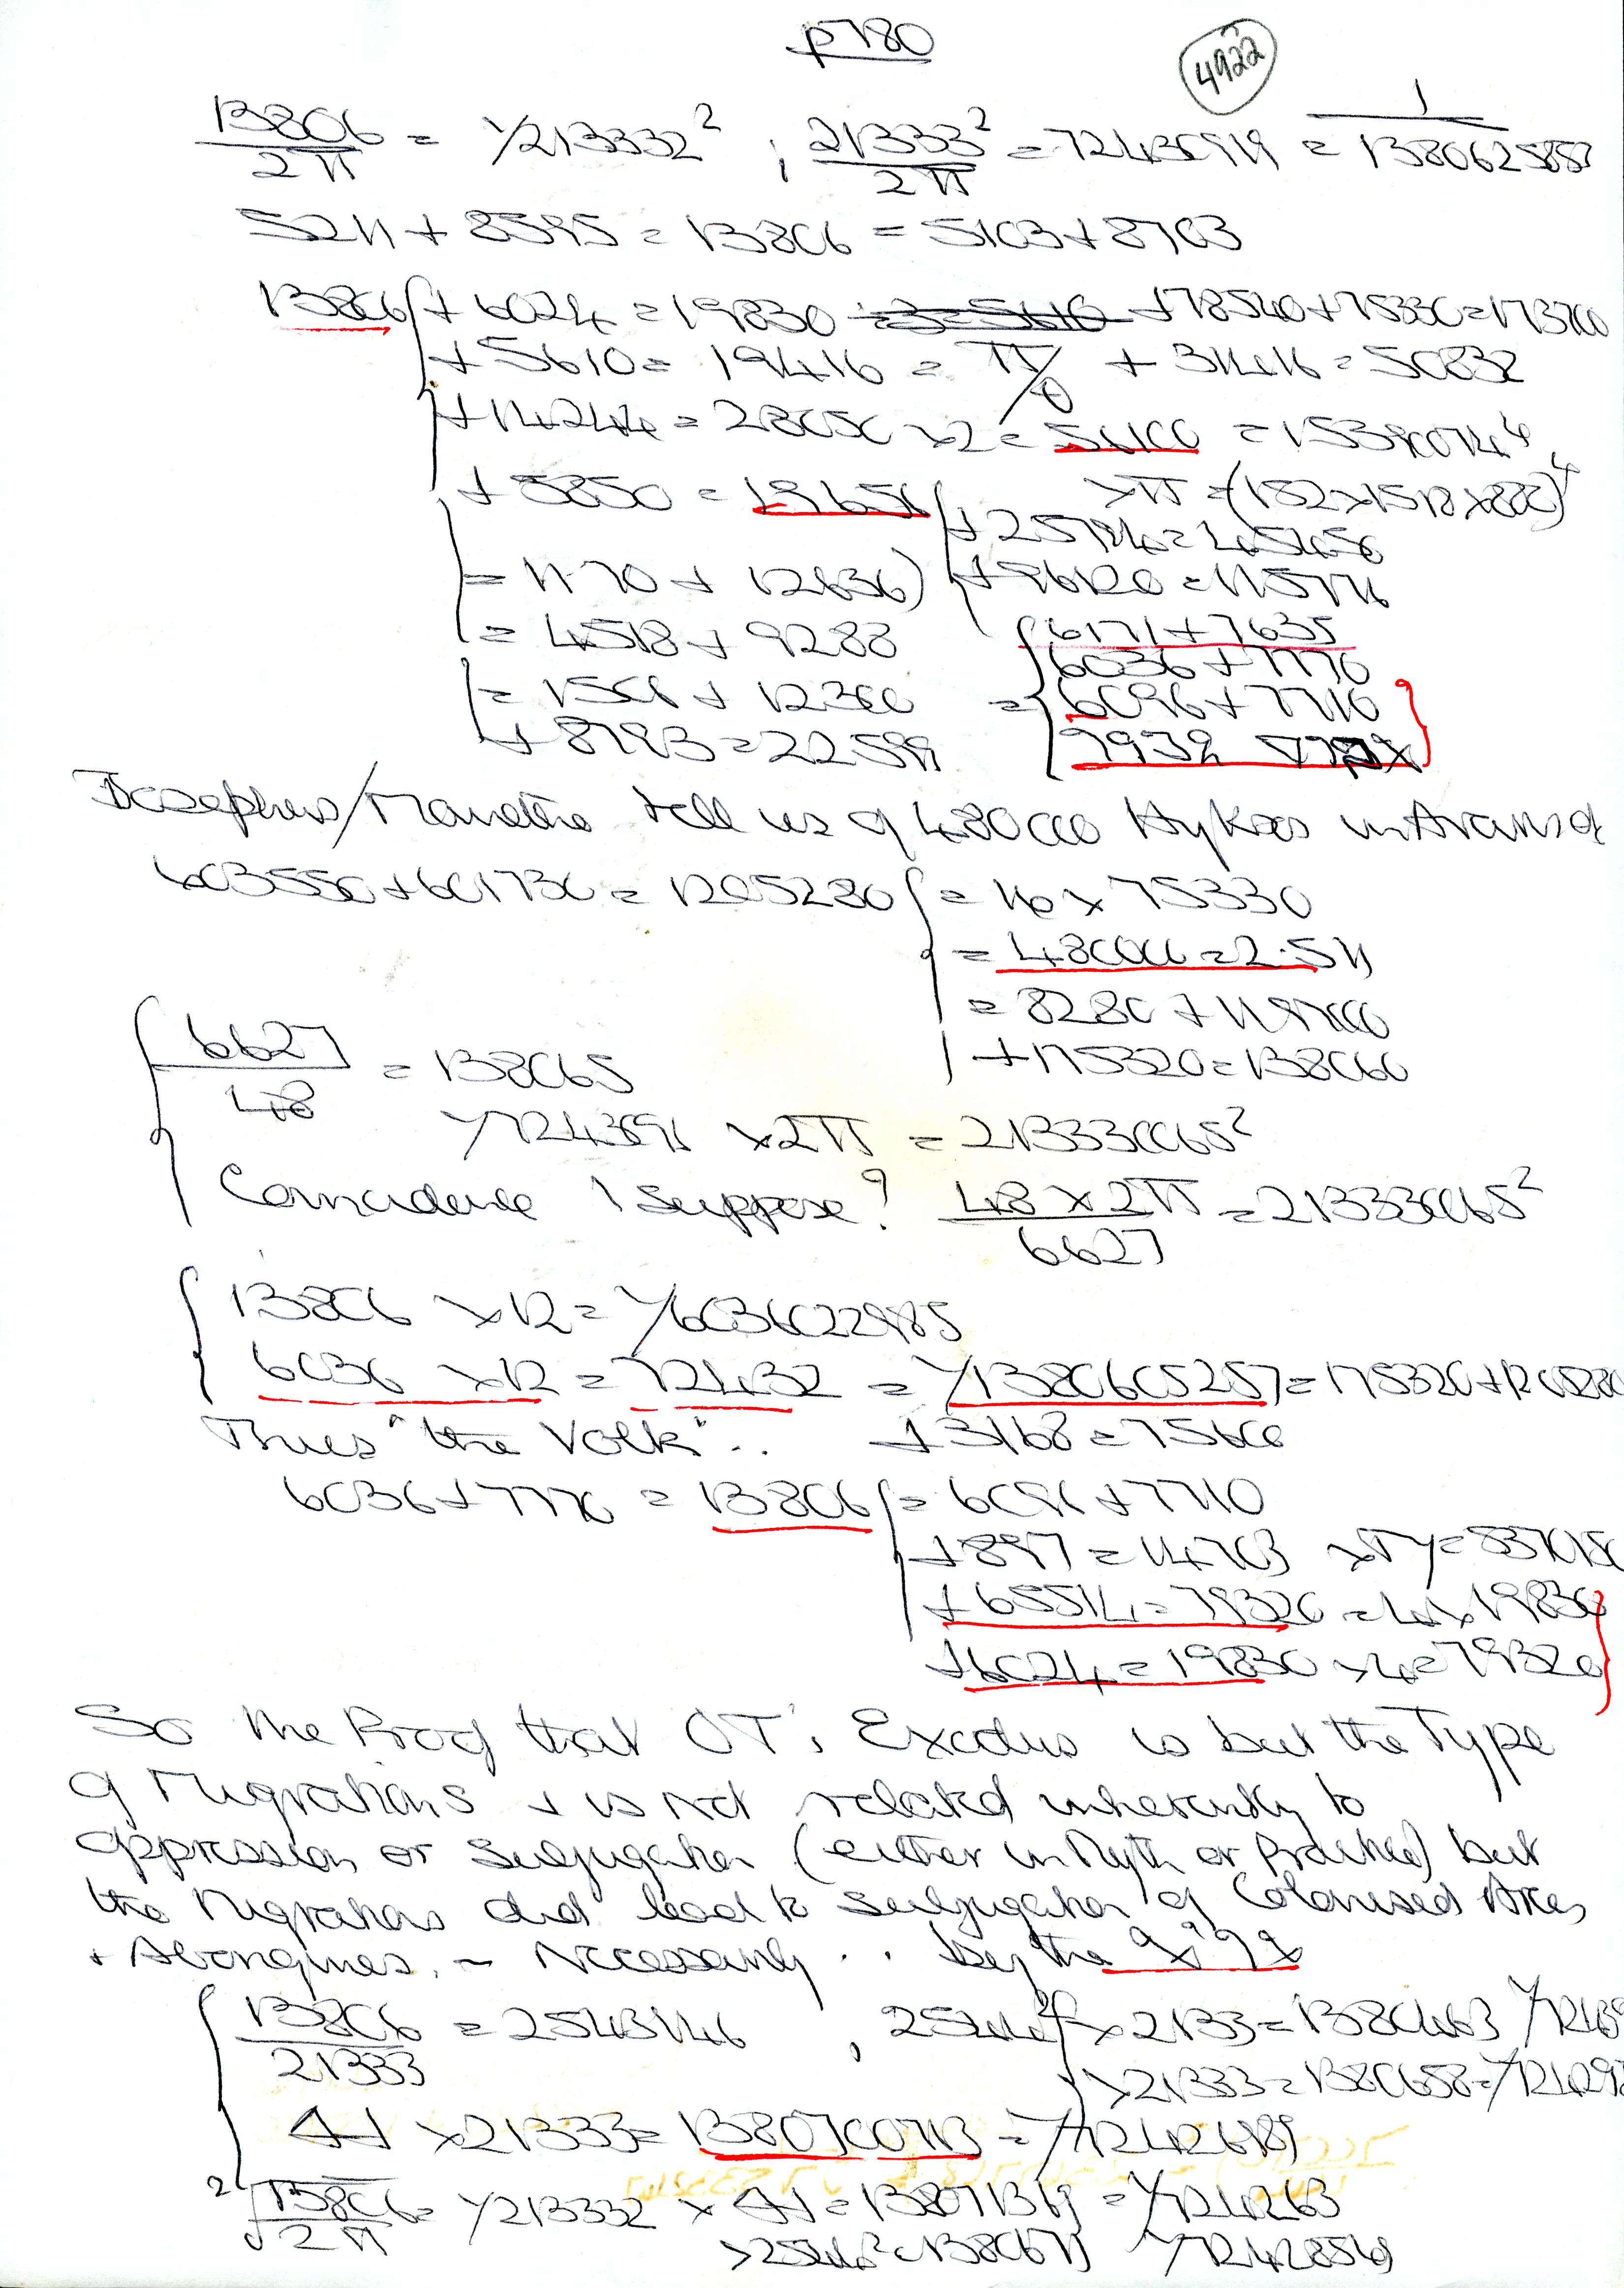 p780
4922
13806/2π = Y213332² ; 21333²/2π = 72436919 = 1/1380625887
5211 + 8595 = 13806 = 5103 + 8703
13806 + 6024 = 19830 + 78540 + 75330 = 173700
+ 5610 = 19416 = π/φ + 31416 = 50832
+ 14244 = 28050 x 2 = 56100 = 15390744⁴
+ 5850 = 19656 x π = (152 x 1518 x 888)⁴
+ 25794 = 45456
= 1170 + 12636 + 96120 = 115776
= 4518 + 9288 6171 + 7635
6036 + 7770
= 1506 + 12300 = 6096 + 7710
+ 8793 = 22599 7932
Josephus/Manetho tell us of 480000 Hyksos in Avaris of
603550 + 601730 = 1205280 = 16 x 75330
= 480000 = 2.511
= 8280 + 1197000
+ 175320 = 138060
6627/48 = 138065
Y7243691 x 2π = 2133300065²
Coincidence I suppose? 48 x 2π/6627 = 2133300065²
13806 x 12 = Y6036022985
6036 x 12 = 72432 = Y1380605257 = 175320 + 1205280
Thus "the Volk" .. + 3168 = 75600
6036 + 7770 = 13806 = 6096 + 7710
+ 897 = 14703 x π Y = 837015
+ 65514 = 79320 = 4 x 19830
+ 6024 = 19830 x 4 = 79320
So the Proof that OT's Exodus is but the Type
of Migrations + is not related inherently to
oppression or subjugation (either in Myth or Practice) but
the Migrations did lead to subjugation of Colonised Area,
+ Aborigines, - Necessarily .. by the
13806/21333 = 2543146 , 2544² x 2133 = 13804463
x 21333 = 1380658 =
x 21333 = 1380700713 = Y72426989
2√13806/2π = Y213332 x = 138071369 = Y724263
x 2544² = 13806711 Y72428569